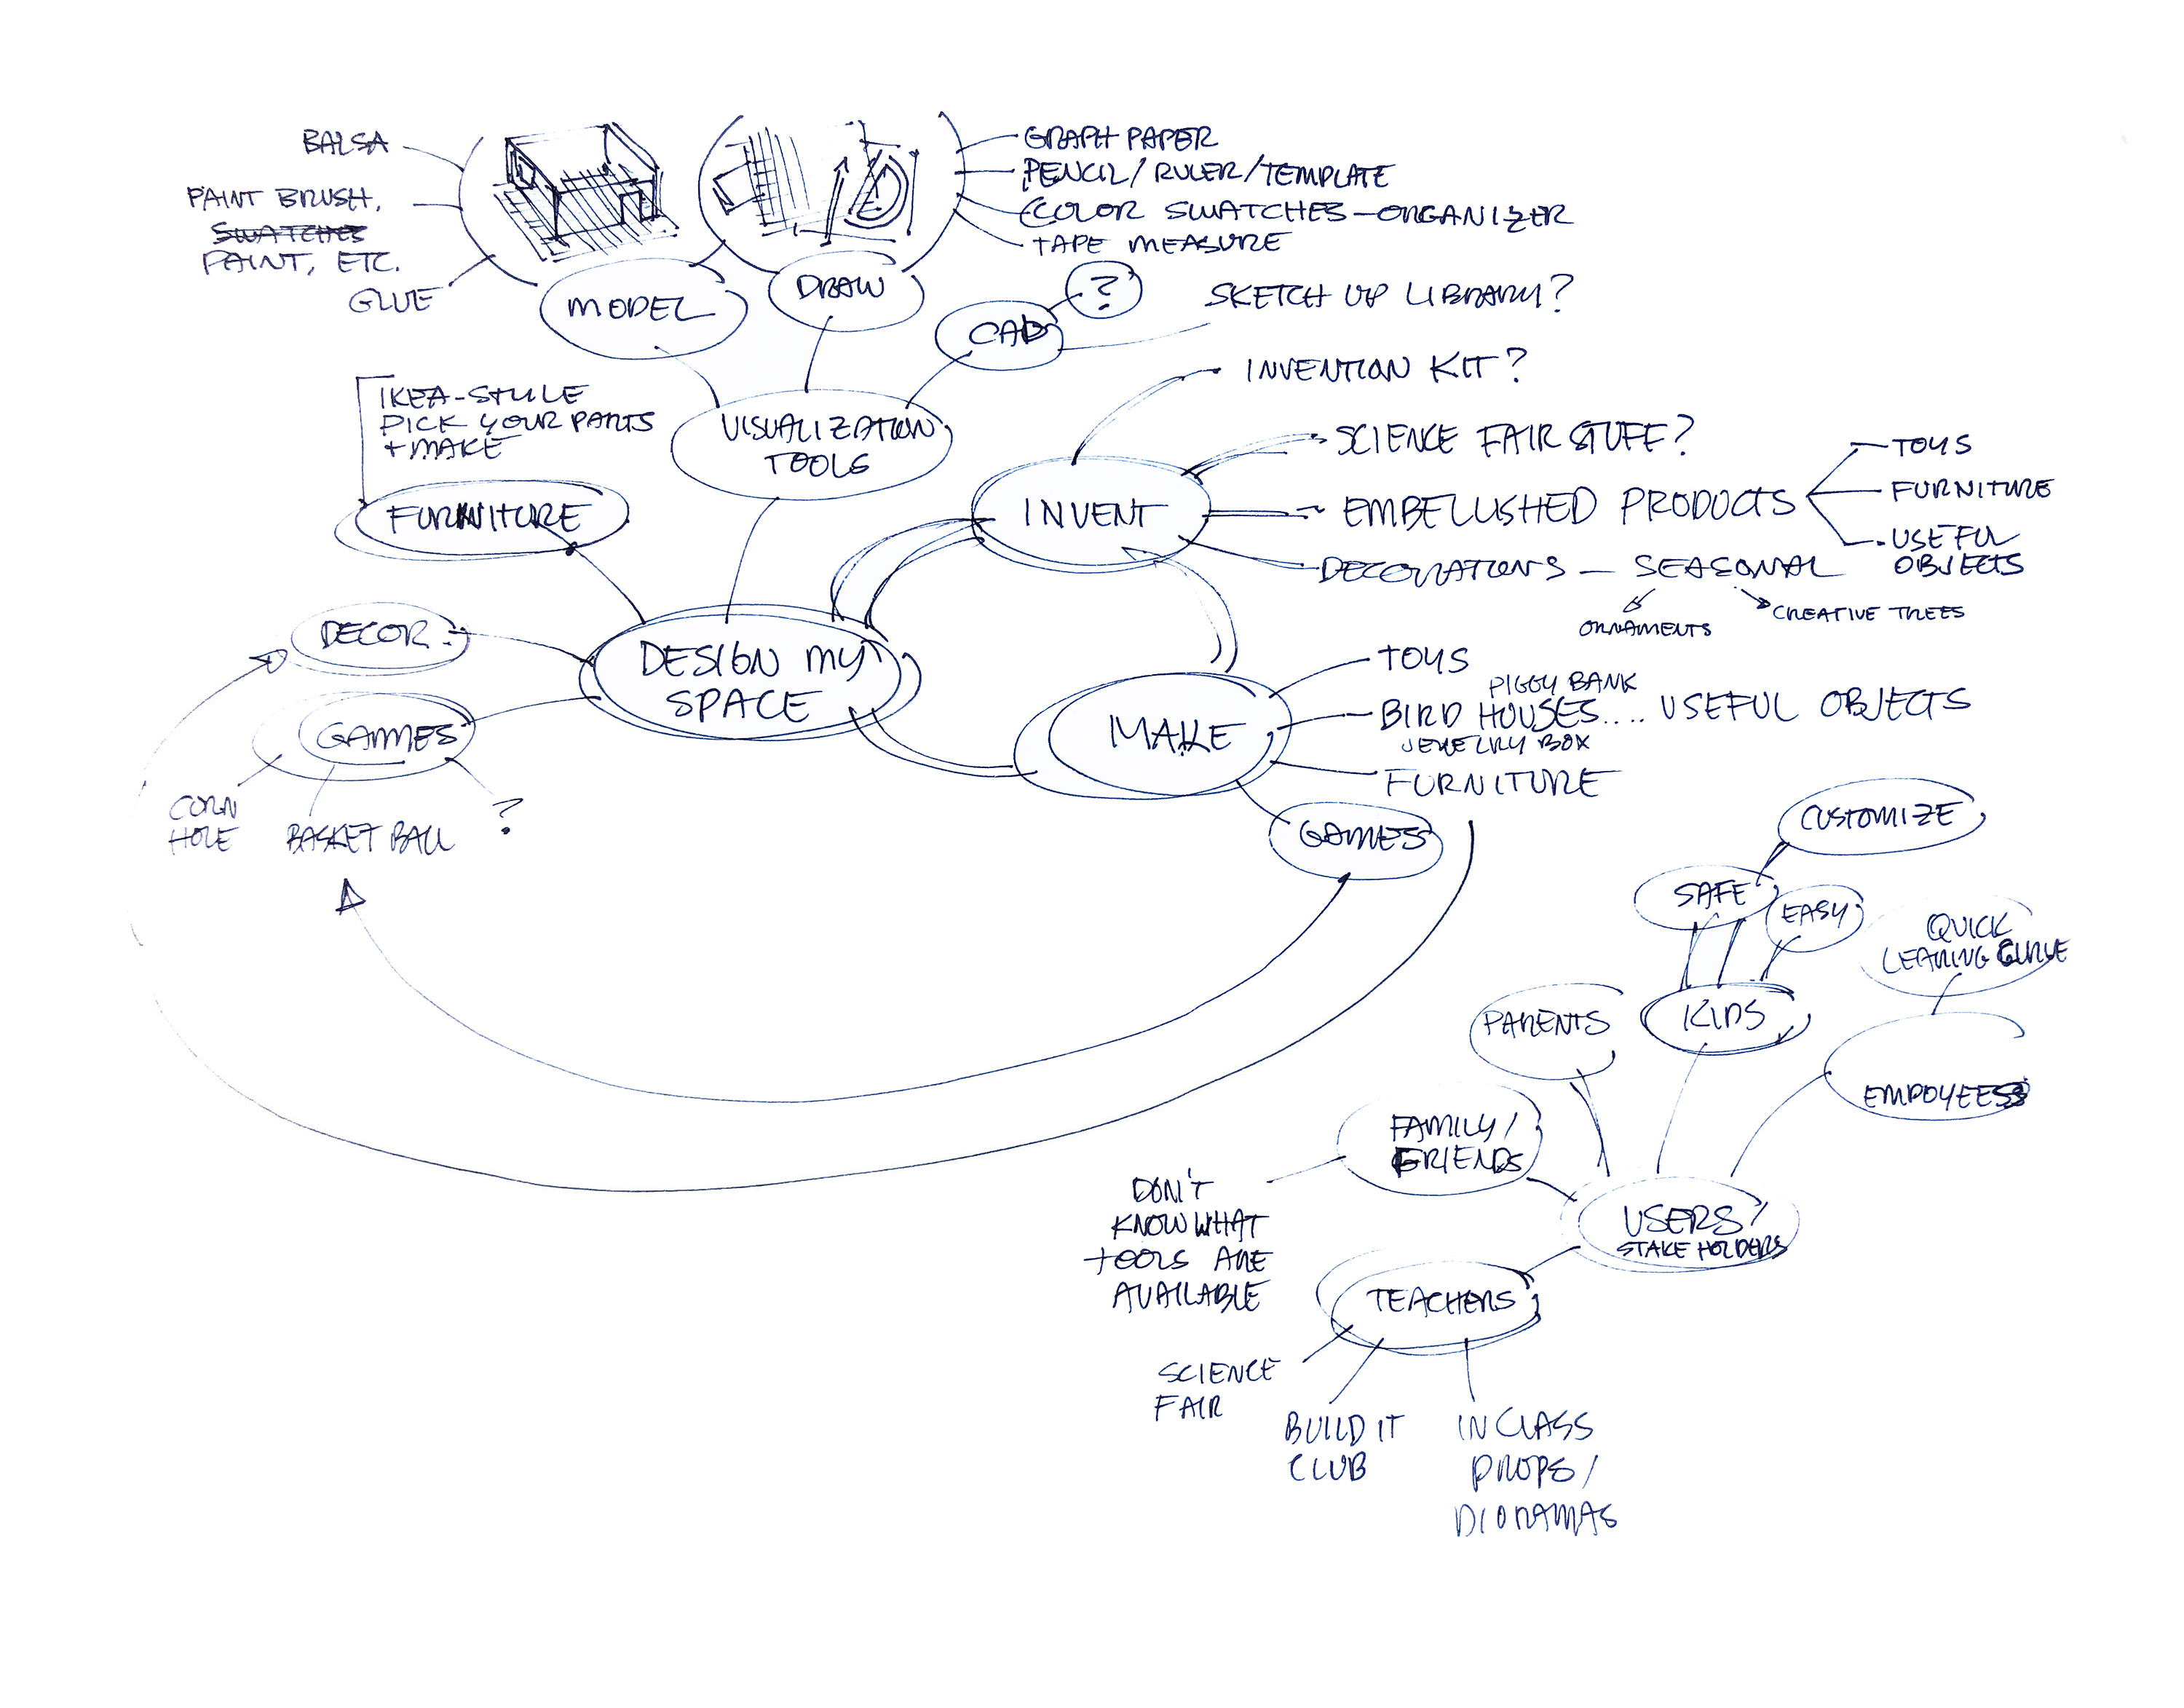 BALSA
PAINT BRUSH,
SWATCHES
PAINT, ETC.
GLUE
MODEL
DRAW
GRAPH PAPER
PENCIL / RULER / TEMPLATE
COLOR SWATCHES - ORGANIZER
TAPE MEASURE
CAD
?
SKETCH UP LIBRARY?
VISUALIZATION
TOOLS
IKEA-STYLE
PICK YOUR PARTS
+ MAKE
FURNITURE
DECOR
GAMES
CORN
HOLE
BASKET BALL
?
DESIGN MY
SPACE
INVENT
INVENTION KIT?
SCIENCE FAIR STUFF?
EMBELLISHED PRODUCTS
TOYS
FURNITURE
USEFUL
OBJECTS
DECORATIONS - SEASONAL
ORNAMENTS
CREATIVE TREES
MAKE
TOYS
PIGGY BANK
BIRD HOUSES.... USEFUL OBJECTS
JEWELRY BOX
FURNITURE
GAMES
CUSTOMIZE
SAFE
EASY
QUICK
LEARING CURVE
PARENTS
KIDS
EMPOYEES
FAMILY /
FRIENDS
DON'T
KNOW WHAT
TOOLS ARE
AVAILABLE
USERS /
STAKE HOLDERS
TEACHERS
SCIENCE
FAIR
BUILD IT
CLUB
IN CLASS
PROPS /
DIORAMAS